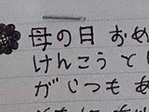 母の日 おめ
けんこう と し
がじつも あ